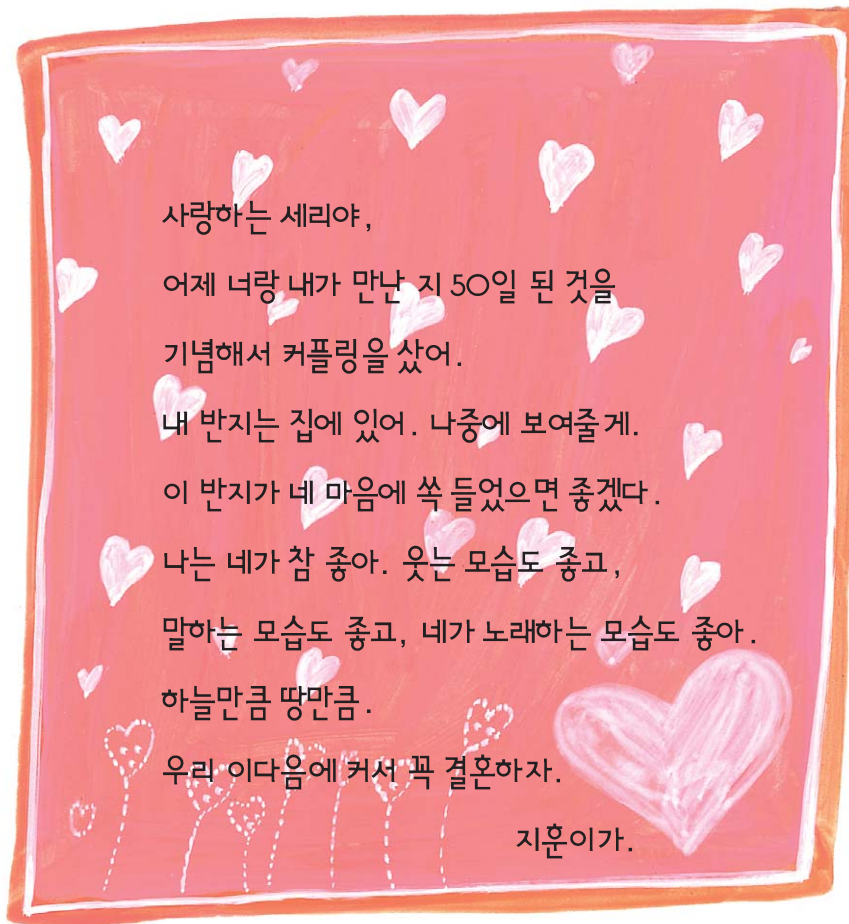 사랑하는 세리야,
어제 너랑 내가 만난 지 50일 된 것을
기념해서 커플링을 샀어.
내 반지는 집에 있어. 나중에 보여줄게.
이 반지가 네 마음에 쏙 들었으면 좋겠다.
나는 네가 참 좋아. 웃는 모습도 좋고,
말하는 모습도 좋고, 네가 노래하는 모습도 좋아.
하늘만큼 땅만큼.
우리 이다음에 커서 꼭 결혼하자.
지훈이가.